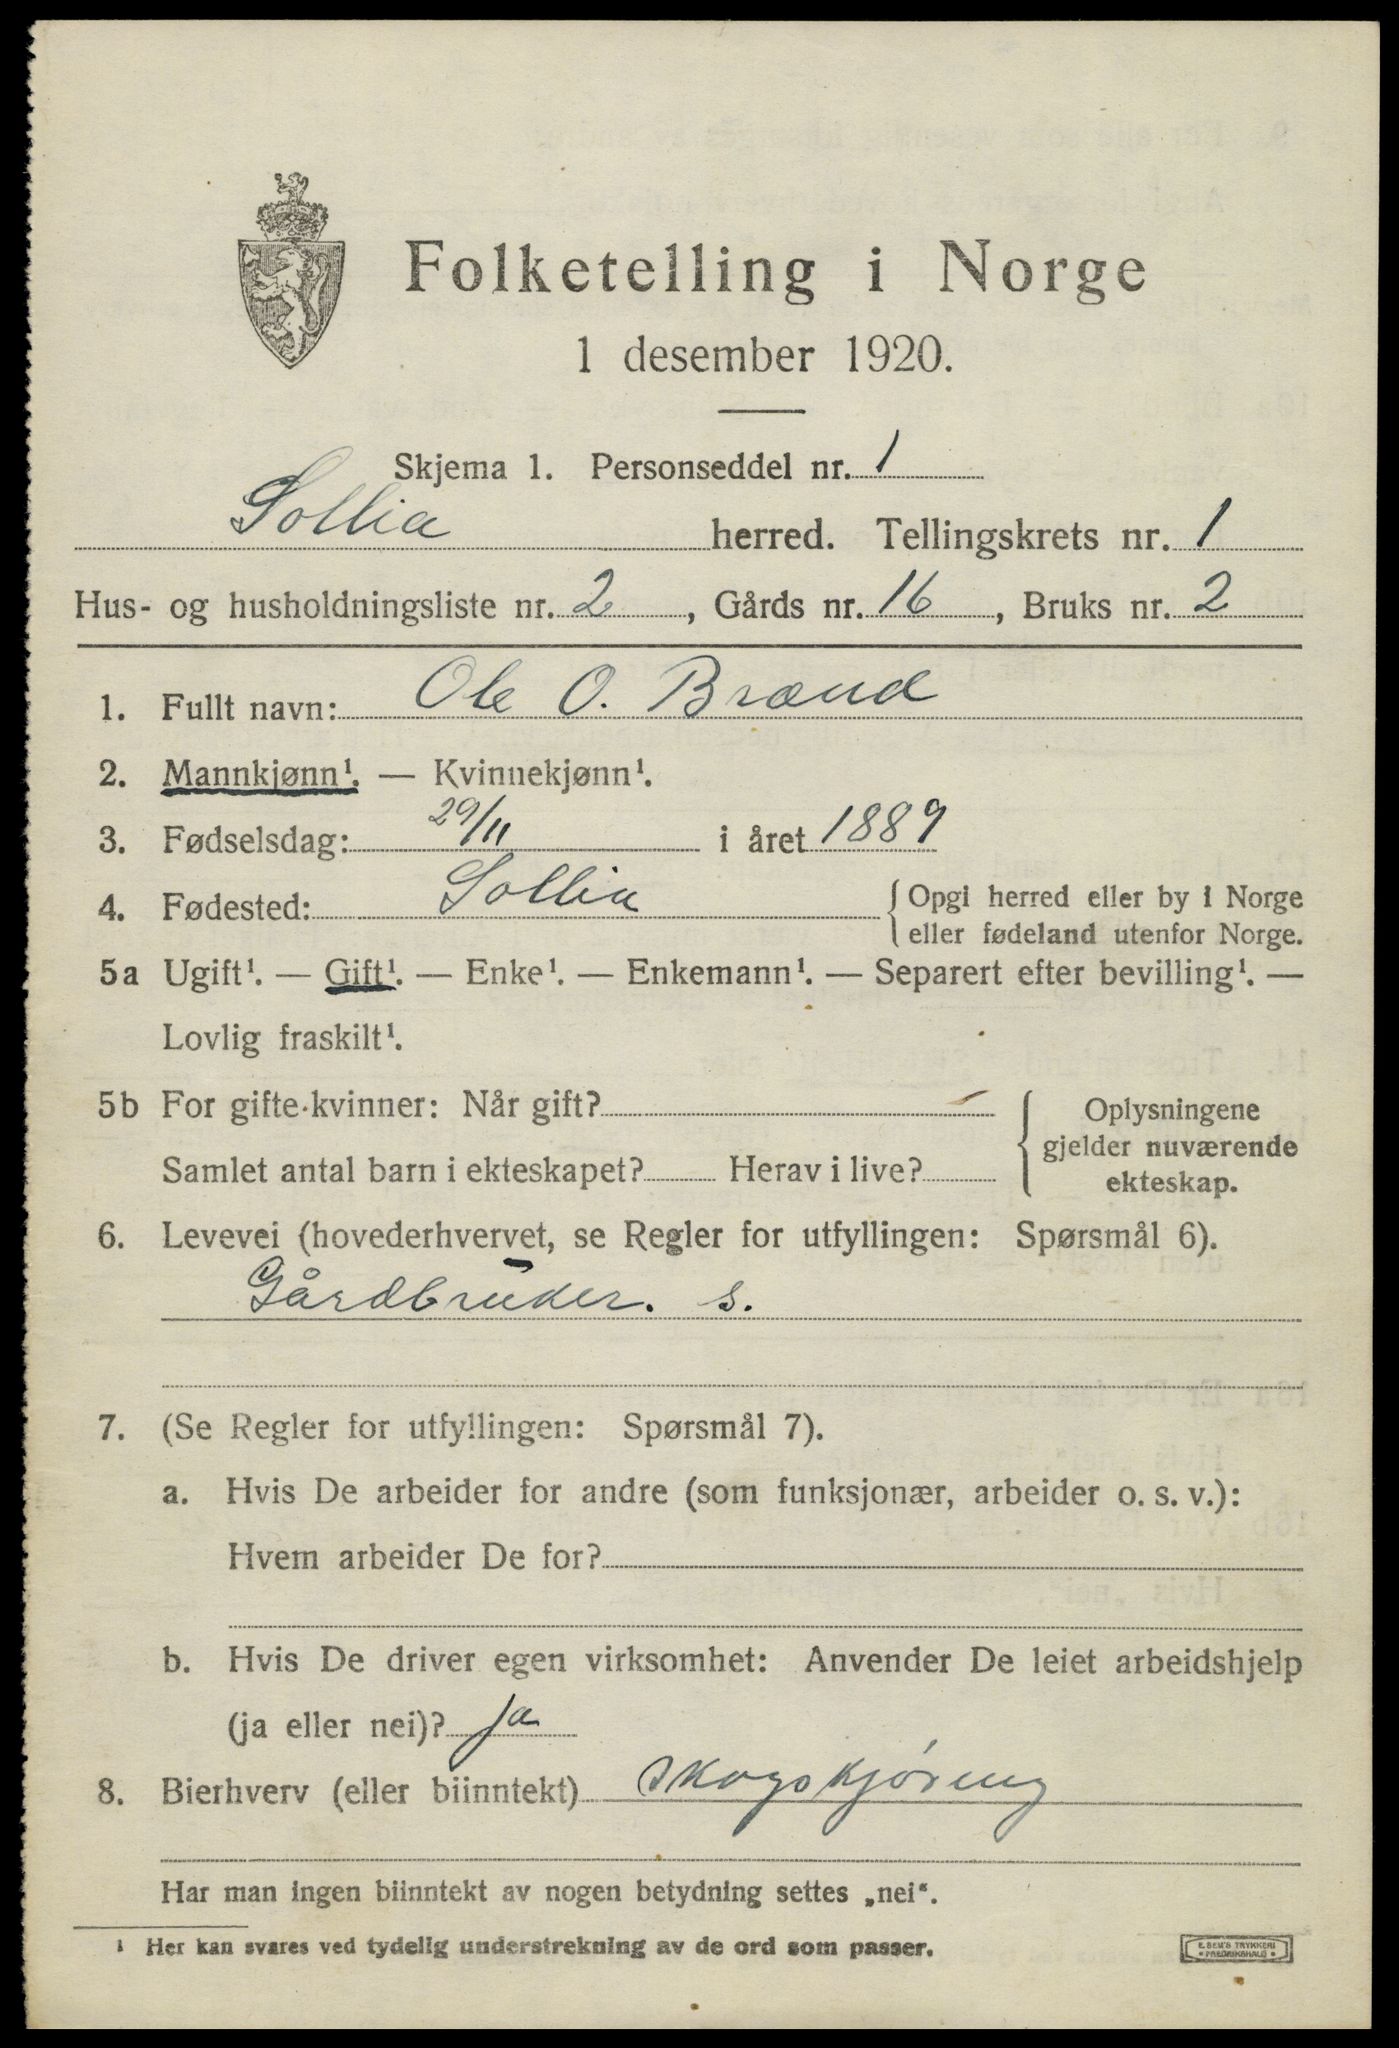 Folketelling i Norge
1 desember 1920.
Skjema 1. Personseddel nr. 1
Sollia herred. Tellingskrets nr. 1
Hus- og husholdningsliste nr. 2, Gårds nr. 16, Bruks nr. 2
1. Fullt navn: Ole O. Brænd
2. Mannkjønn¹. — Kvinnekjønn¹.
3. Fødselsdag: 29/11 i året 1889
4. Fødested: Sollia { Opgi herred eller by i Norge
eller fødeland utenfor Norge.
5a Ugift¹. — Gift¹. — Enke¹. — Enkemann¹. — Separert efter bevilling¹. —
Lovlig fraskilt¹.
5b For gifte kvinner: Når gift? { Oplysningene
gjelder nuværende
Samlet antal barn i ekteskapet? Herav i live? ekteskap.
6. Levevei (hovederhvervet, se Regler for utfyllingen: Spørsmål 6).
Gårdbruker. s.
7. (Se Regler for utfyllingen: Spørsmål 7).
a. Hvis De arbeider for andre (som funksjonær, arbeider o. s. v.):
Hvem arbeider De for?
b. Hvis De driver egen virksomhet: Anvender De leiet arbeidshjelp
(ja eller nei)? ja
8. Bierhverv (eller biinntekt) skogskjøring
Har man ingen biinntekt av nogen betydning settes „nei“.
¹ Her kan svares ved tydelig understrekning av de ord som passer.
E. SEM'S TRYKKERI
FREDRIKSHALD